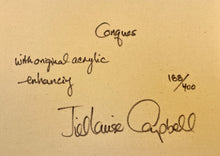 Conques
with original acrylic
enhancing
188/400
Jiel Louise Campbell